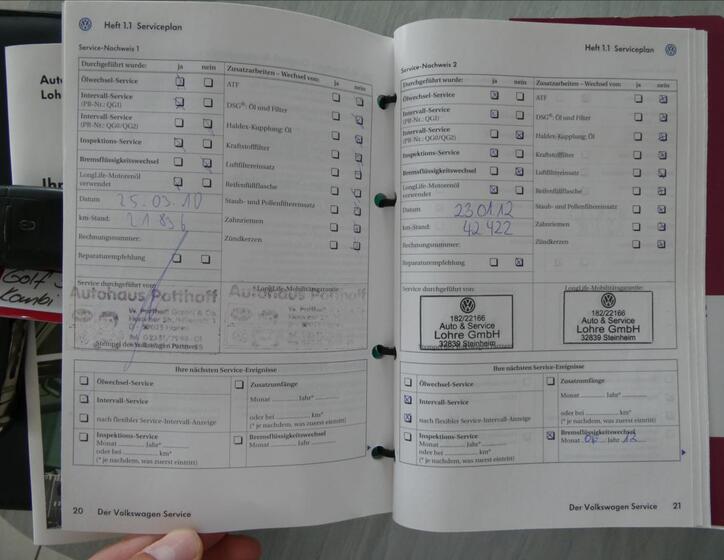 Auto
Lohr
Ihr
Golf
Kombi
Heft 1.1 Serviceplan
Service-Nachweis 1
Durchgeführt wurde: ja nein
Ölwechsel-Service
Intervall-Service
(PR-Nr.: QG1)
Intervall-Service
(PR-Nr.: QG0/QG2)
Inspektions-Service
Bremsflüssigkeitswechsel
LongLife-Motorenöl
verwendet
Datum 25.03.10
km-Stand: 21836
Rechnungsnummer:
Reparaturempfehlung
Zusatzarbeiten – Wechsel von: ja nein
ATF
DSG®: Öl und Filter
Haldex-Kupplung: Öl
Kraftstofffilter
Luftfiltereinsatz
Reifenfüllflasche
Staub- und Pollenfiltereinsatz
Zahnriemen
Zündkerzen
Service durchgeführt von:
LongLife-Mobilitätsgarantie
Autohaus Potthoff
Autohaus Potthoff
Stempel des Volkswagen Partners
Ihre nächsten Service-Ereignisse
Ölwechsel-Service
Intervall-Service
nach flexibler Service-Intervall-Anzeige
Inspektions-Service
Monat Jahr*
oder bei km*
(* je nachdem, was zuerst eintritt)
Zusatzumfänge
Monat Jahr*
oder bei km*
(* je nachdem, was zuerst eintritt)
Bremsflüssigkeitswechsel
Monat Jahr
20 Der Volkswagen Service
Heft 1.1 Serviceplan
Service-Nachweis 2
Durchgeführt wurde: ja nein
Ölwechsel-Service
Intervall-Service
(PR-Nr.: QG1)
Intervall-Service
(PR-Nr.: QG0/QG2)
Inspektions-Service
Bremsflüssigkeitswechsel
LongLife-Motorenöl
verwendet
Datum 23.01.12
km-Stand: 42422
Rechnungsnummer:
Reparaturempfehlung
Zusatzarbeiten – Wechsel von: ja nein
ATF
DSG®: Öl und Filter
Haldex-Kupplung: Öl
Kraftstofffilter
Luftfiltereinsatz
Reifenfüllflasche
Staub- und Pollenfiltereinsatz
Zahnriemen
Zündkerzen
Service durchgeführt von:
LongLife-Mobilitätsgarantie
182/22166
Auto & Service
Lohre GmbH
32839 Steinheim
182/22166
Auto & Service
Lohre GmbH
32839 Steinheim
Ihre nächsten Service-Ereignisse
Ölwechsel-Service
Intervall-Service
nach flexibler Service-Intervall-Anzeige
Inspektions-Service
Monat Jahr*
oder bei km*
(* je nachdem, was zuerst eintritt)
Zusatzumfänge
Monat Jahr*
oder bei km*
(* je nachdem, was zuerst eintritt)
Bremsflüssigkeitswechsel
Monat Jahr 12
Der Volkswagen Service 21